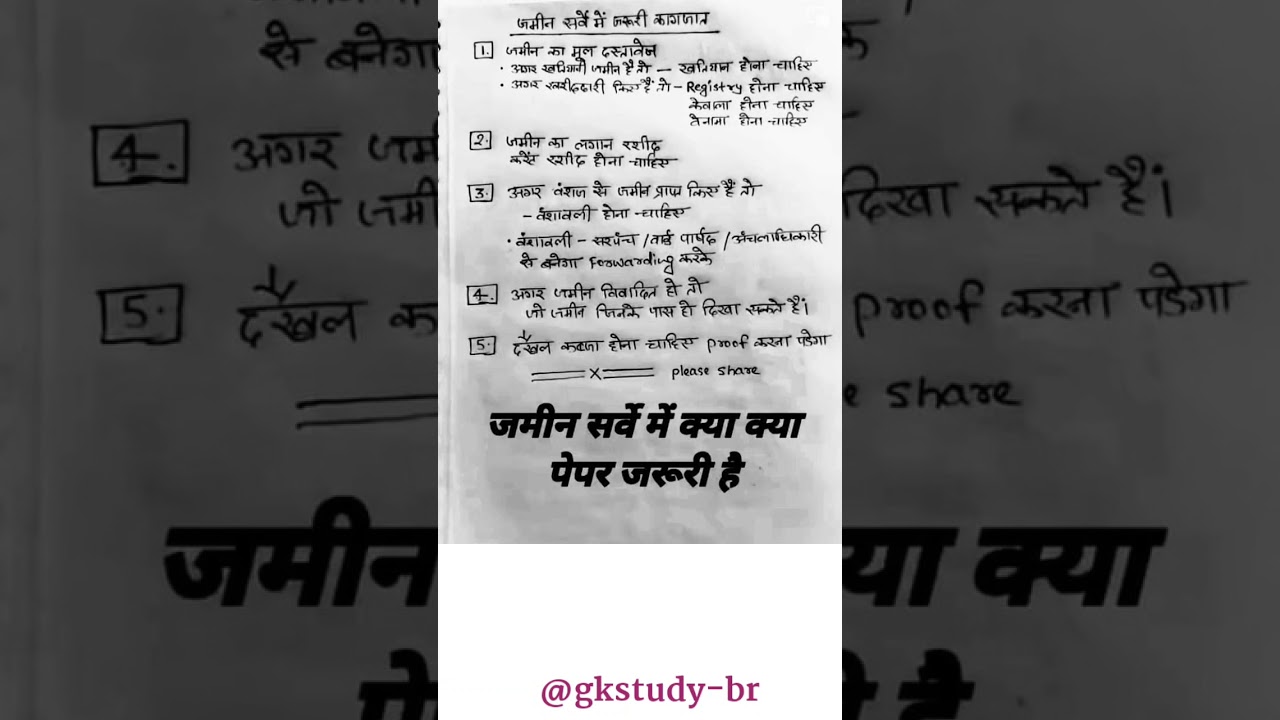 जमीन सर्वे में जरूरी कागजात
1. जमीन का मूल दस्तावेज
• अगर खतियानी जमीन है तो – खतियान होना चाहिए
• अगर खरीददारी किए हैं तो – Registry होना चाहिए
केवाला होना चाहिए
वेनामा होना चाहिए
2. जमीन का लगान रशीद
करेंट रशीद होना चाहिए
3. अगर वंशज से जमीन प्राप्त किए हैं तो
– वंशावली होना चाहिए
• वंशावली – सरपंच / वार्ड पार्षद / अंचलाधिकारी
से बनेगा Forwarding करके
4. अगर जमीन विवादित हो तो
जो जमीन जिनके पास हो दिखा सकते हैं।
5. दखल कब्जा होना चाहिए proof करना पडेगा
x please share
जमीन सर्वे में क्या क्या
पेपर जरूरी है
@gkstudy-br